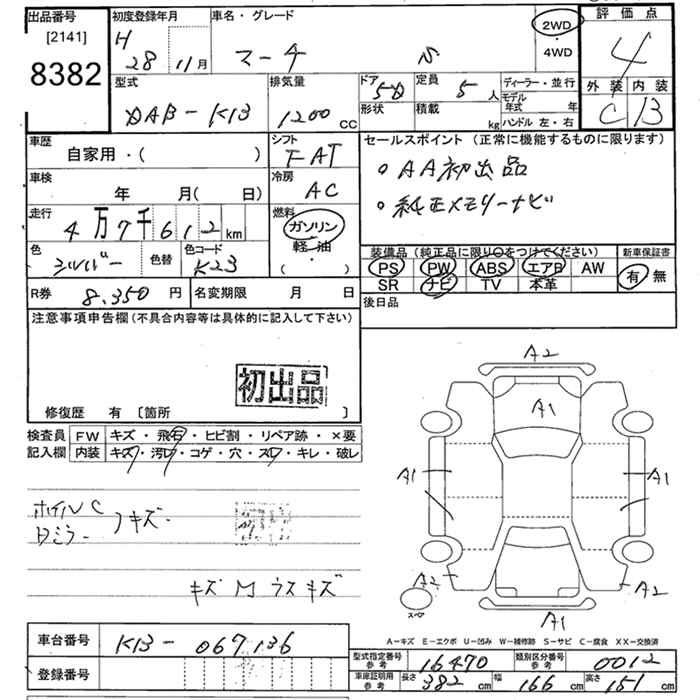 出品番号 初度登録年月 車名・グレード 2WD 評価点
[2141] H 28 11月 マーチ N ・4WD 4
8382 型式 排気量 ドア 5D 定員 5人 ディーラー・並行 外装 内装
DAB-K13 1200 CC 形状 積載 kg モデル年式 年 C B
ハンドル 左・右
車歴 シフト セールスポイント (正常に機能するものに限ります)
自家用・( ) FAT 。AA初出品
車検 冷房 。純正メモリーナビ
年 月(日) AC
走行 燃料
4万7千612 km ガソリン
色 色替 色コード 軽油 装備品(純正品に限り○をつけてください) 新車保証書
シルバー K23 ・( ) PS PW ABS エアB AW 有・無
R券 8,350円 名変期限 月 日 SR ナビ TV 本革
注意事項申告欄(不具合内容等は具体的に記入して下さい) 後日品
初出品
修復歴 有 [箇所 ]
検査員 FW キズ・飛石・ヒビ割・リペア跡・×要
記入欄 内装 キズ・汚レ・コゲ・穴・スレ・キレ・破レ
A2
A1
A1 A1
ホイルC
ミラー キズ
キズ M ウスキズ
A2 A2
スペア
A1
A-キズ E-エクボ U-凹み W-補修跡 S-サビ C-腐食 XX-交換済
車台番号 K13-067136
登録番号
型式指定番号 参考 16470 類別区分番号 参考 0012
車庫証明用 参考 長さ 382cm 幅 166cm 高さ 151cm